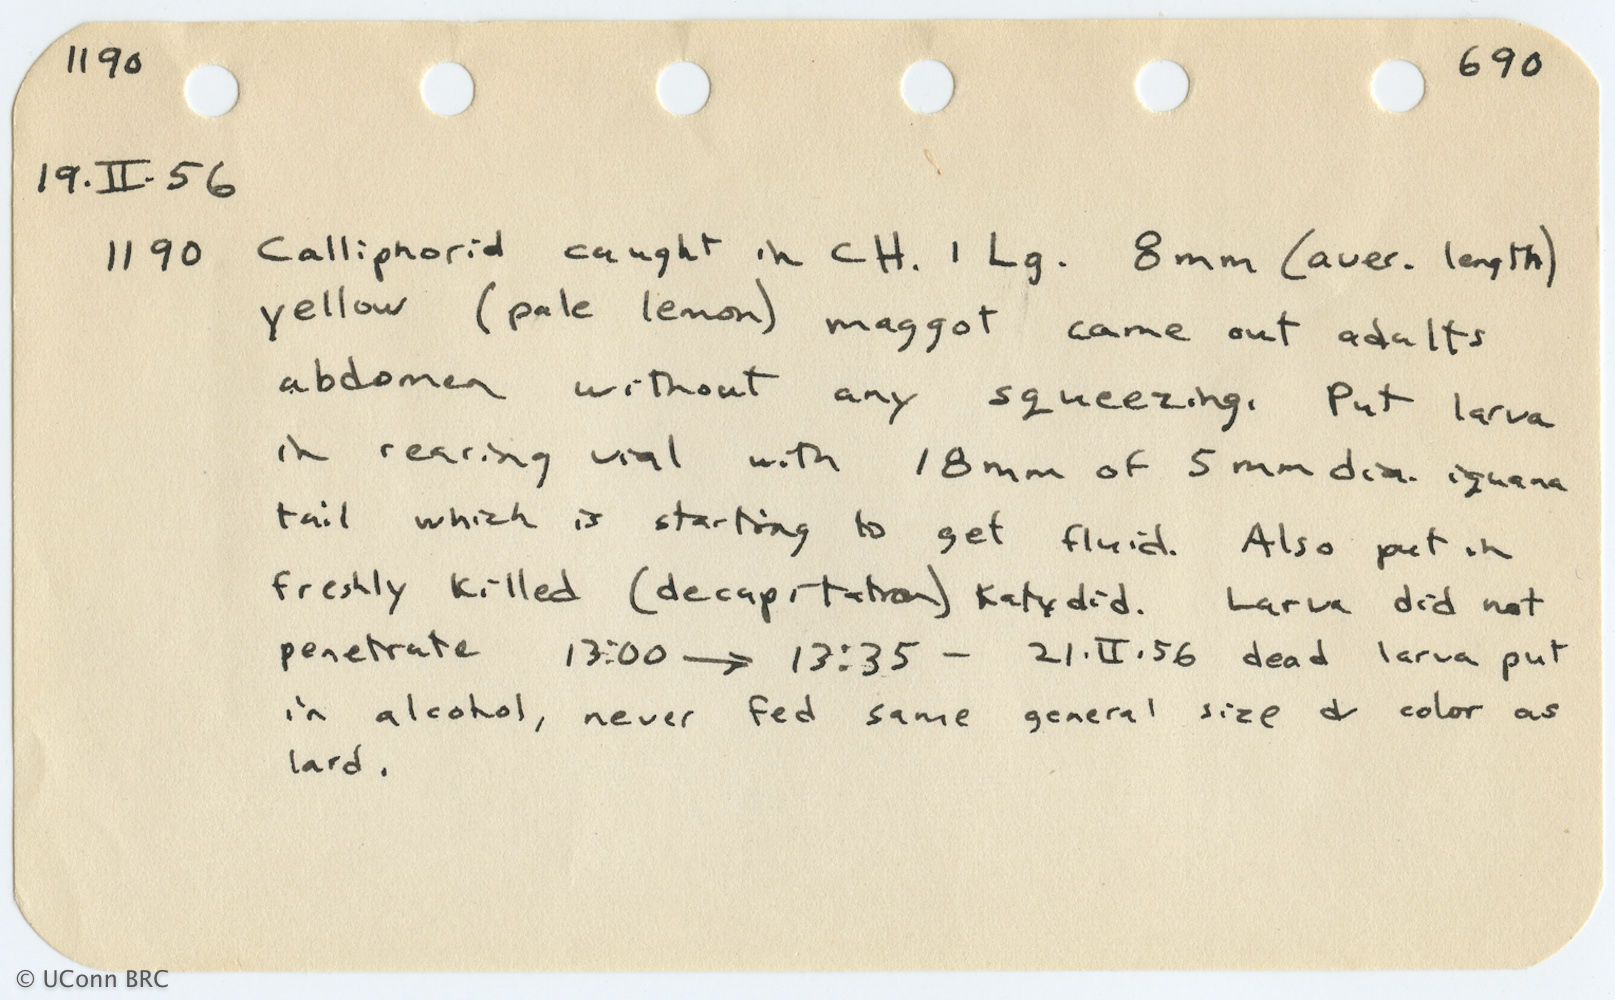 1190 690
19.II.56
1190 Calliphorid caught in CH. 1 Lg. 8mm (aver. length)
yellow (pale lemon) maggot came out adults
abdomen without any squeezing. Put larva
in rearing vial with 18mm of 5mm dia. iguana
tail which is starting to get fluid. Also put in
freshly killed (decapitation) katydid. Larva did not
penetrate 13:00 → 13:35 – 21.II.56 dead larva put
in alcohol, never fed same general size & color as
lard.
© UConn BRC